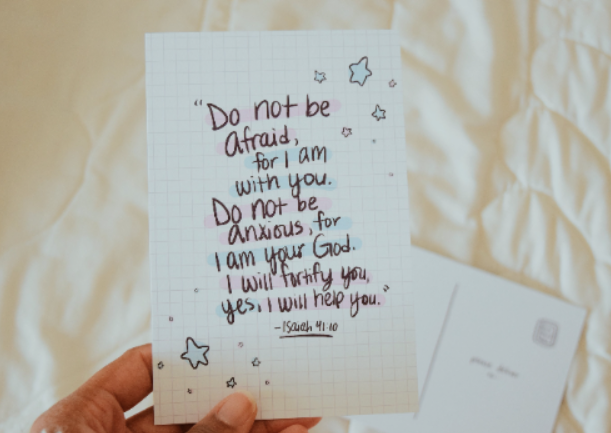 “Do not be
afraid,
for I am
with you.
Do not be
anxious, for
I am your God.
I will fortify you,
yes, I will help you.”
-Isaiah 41:10